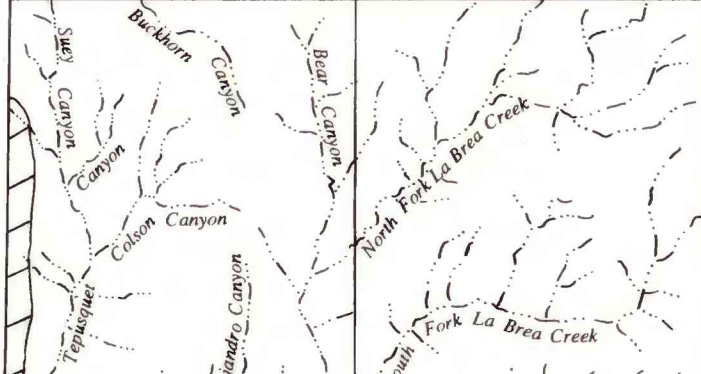 Suey Canyon
Buckhorn Canyon
Bear Canyon
Canyon
Colson Canyon
North Fork La Brea Creek
Tepusquet
Canyon
Fork La Brea Creek